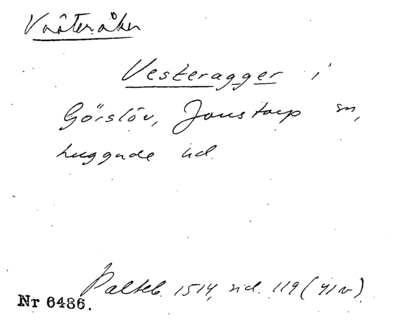 Västeråker
Vesteragger i
Görslöv, Jonstorp sn,
huggade ud.
Palteb. 1514, sid. 119 (41v)
Nr 6486.